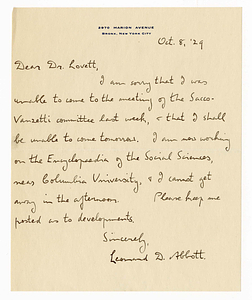 2970 MARION AVENUE
BRONX, NEW YORK CITY
Oct. 8, '29
Dear Dr. Lovett,
I am sorry that I was
unable to come to the meeting of the Sacco-
Vanzetti committee last week, & that I shall
be unable to come tomorrow. I am now working
on the Encyclopaedia of the Social Sciences,
near Columbia University, & I cannot get
away in the afternoon. Please keep me
posted as to developments.
Sincerely,
Leonard D. Abbott.